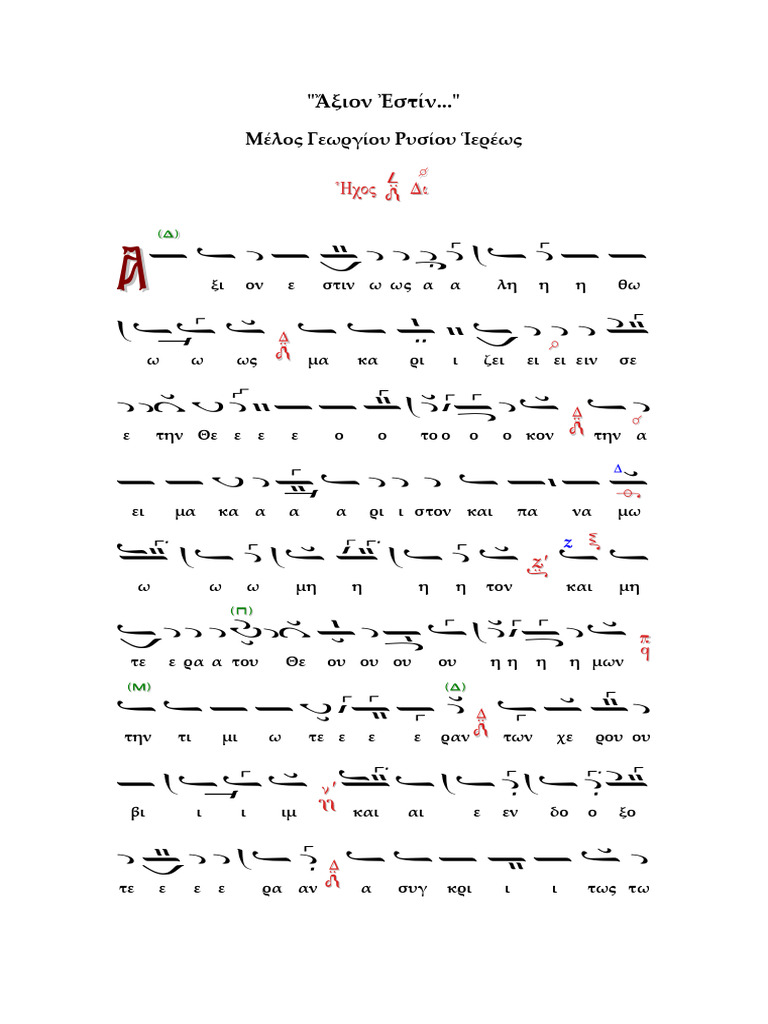 "Ἄξιον Ἐστίν..."
Μέλος Γεωργίου Ρυσίου Ἱερέως
Ἦχος Δι
(Δ)
Α ξι ον ε στιν ω ως α α λη η η θω
ω ω ως Δ μα κα ρι ι ζει ει ει ειν σε
ε την Θε ε ε ε ο ο το ο ο ο κον Δ την α
ει μα κα α α α ρι ι στον και πα να μω
Δ
ω ω ω μη η η η τον Ζ΄ Ζ και μη
(Π)
τε ε ρα α του Θε ου ου ου ου η η η η μων π
(Μ) (Δ)
την τι μι ω τε ε ε ε ραν Δ των χε ρου ου
βι ι ι ιμ ν΄ και αι ε εν δο ο ξο
τε ε ε ε ρα αν Δ α συγ κρι ι ι τως τω